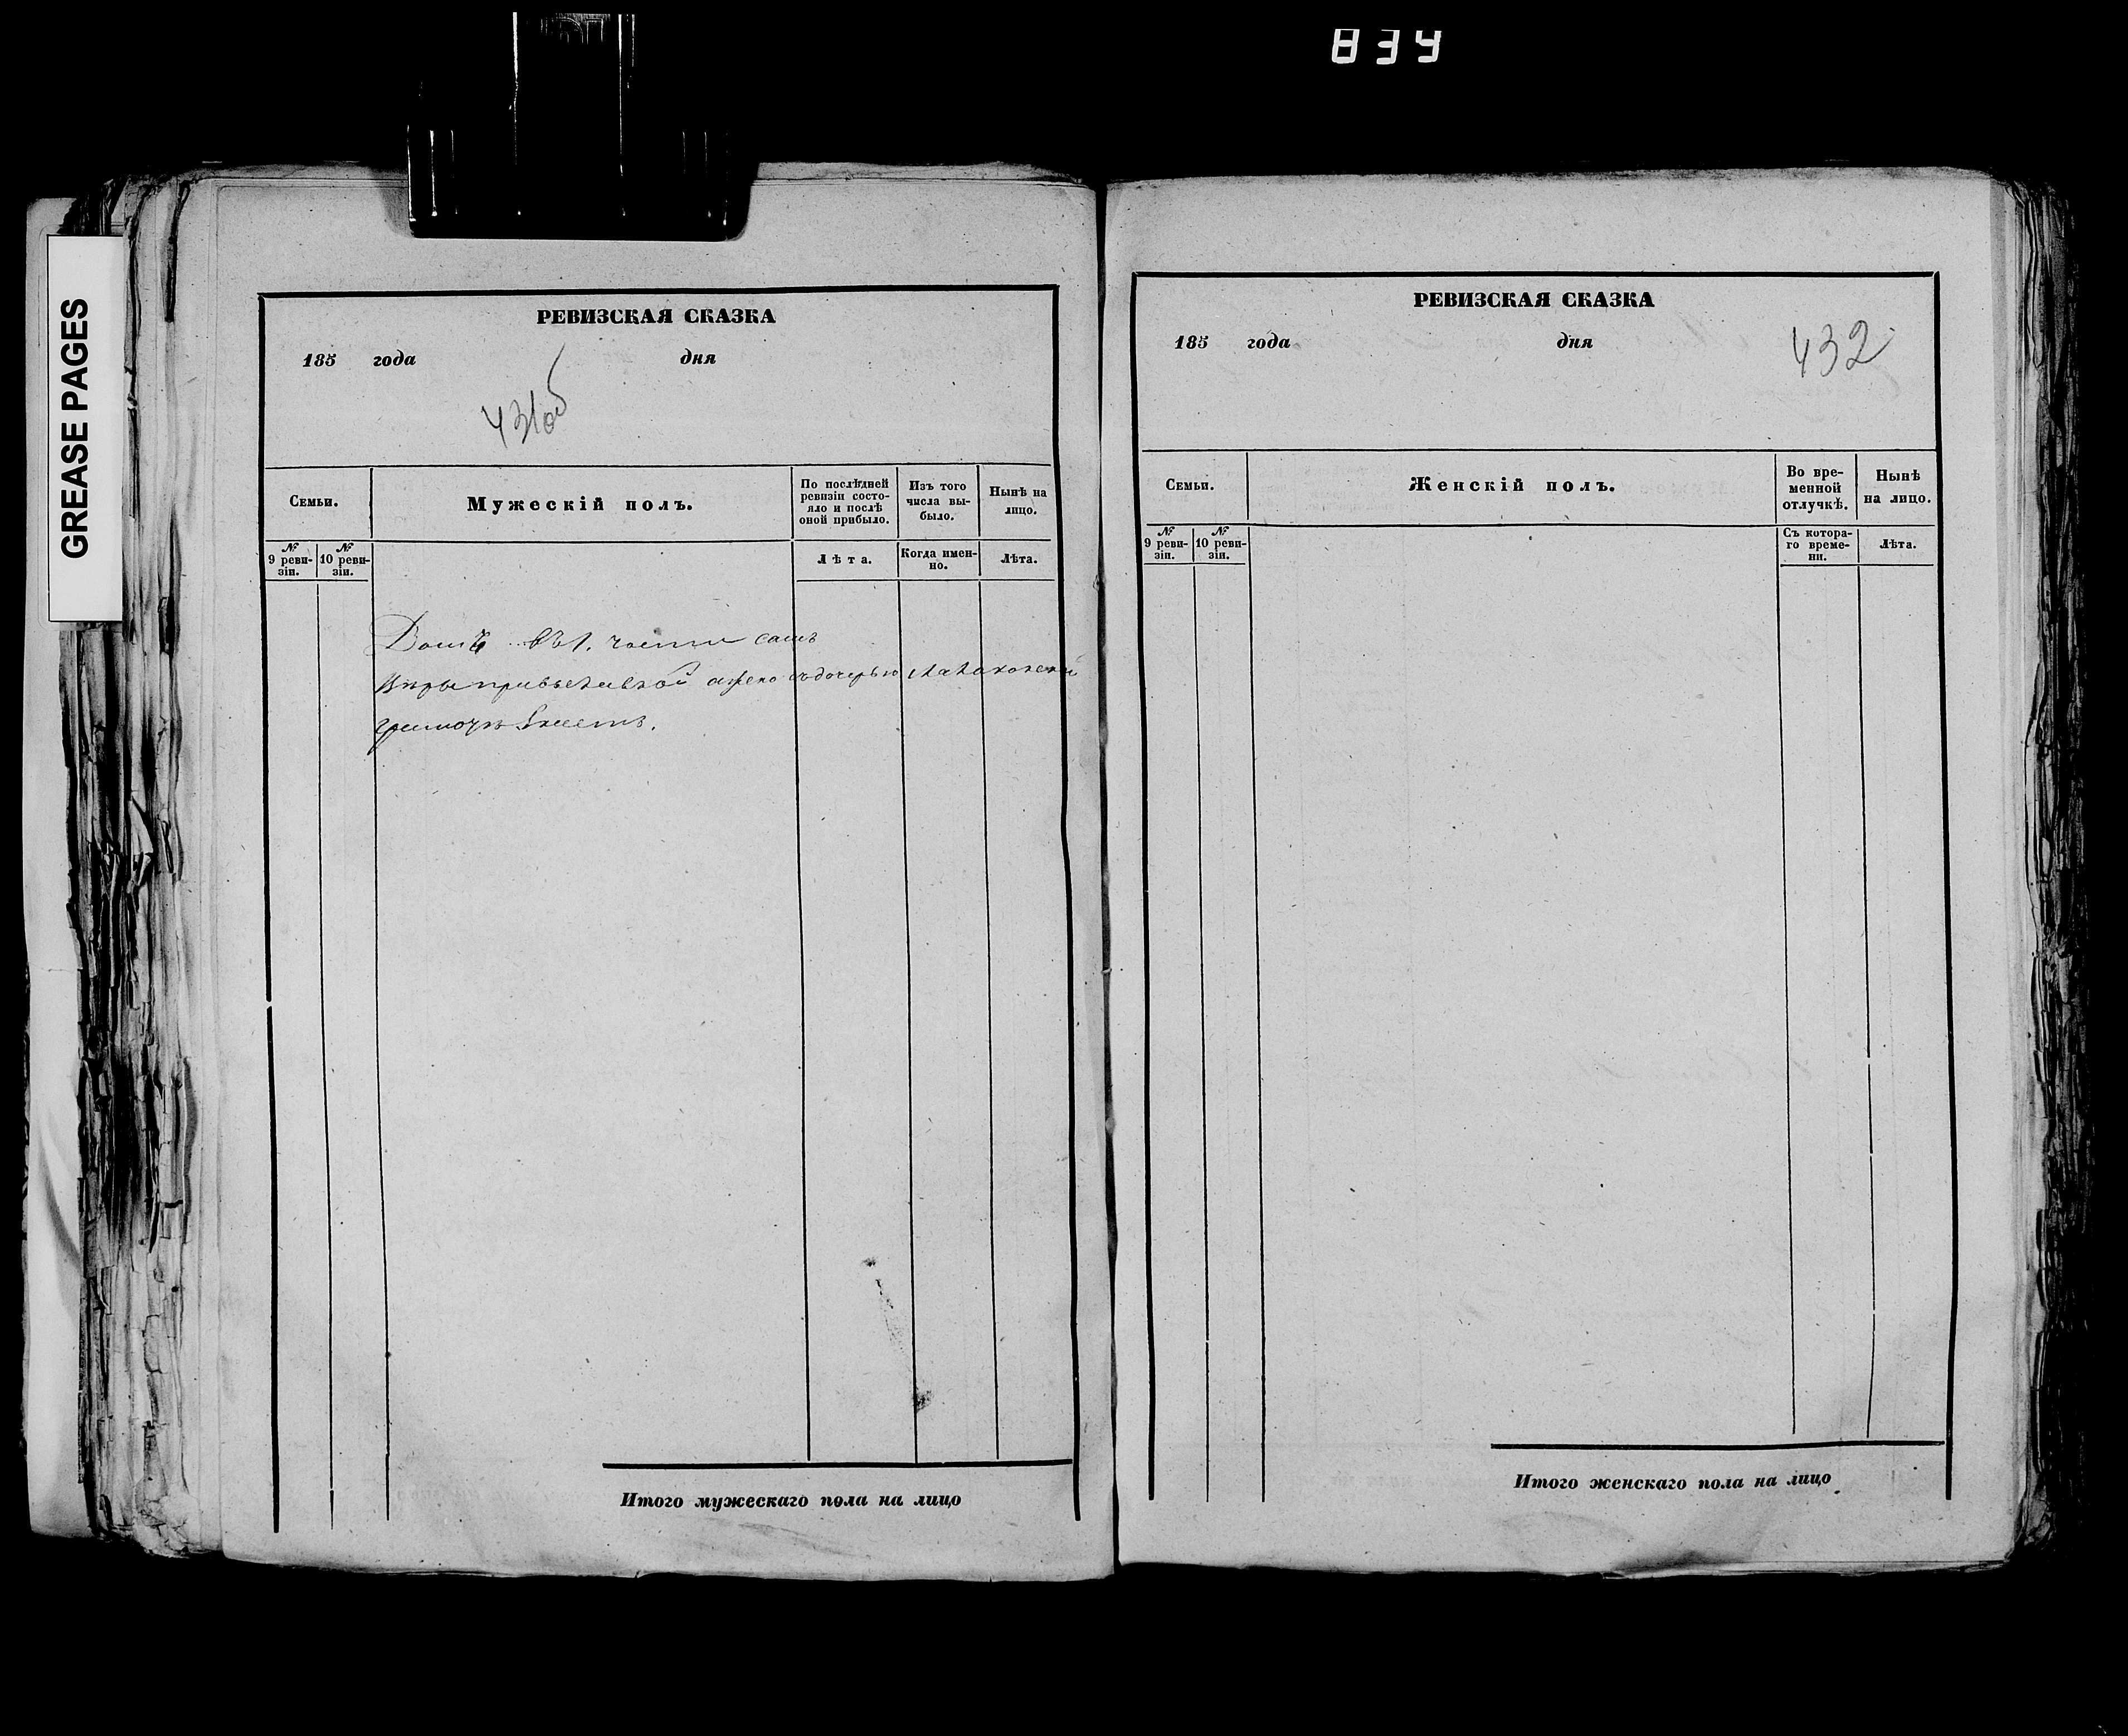 834
GREASE PAGES
РЕВИЗСКАЯ СКАЗКА
185 года дня
431об
Семьи.
Мужескій полъ.
По послѣдней ревизіи состо-
яло и послѣ оной прибыло.
Изъ того числа вы-
было.
Нынѣ на лицо.
№ 9 реви-
зіи.
№ 10 реви-
зіи.
Лѣта.
Когда имен-
но.
Лѣта.
Домъ въ 1. части самъ
вѣры а жена съ дочерью
грамотѣ знаетъ.
Итого мужескаго пола на лицо
РЕВИЗСКАЯ СКАЗКА
185 года дня
432
Семьи.
Женскій полъ.
Во вре-
менной
отлучкѣ.
Нынѣ
на лицо.
№ 9 реви-
зіи.
№ 10 реви-
зіи.
Съ котора-
го време-
ни.
Лѣта.
Итого женскаго пола на лицо